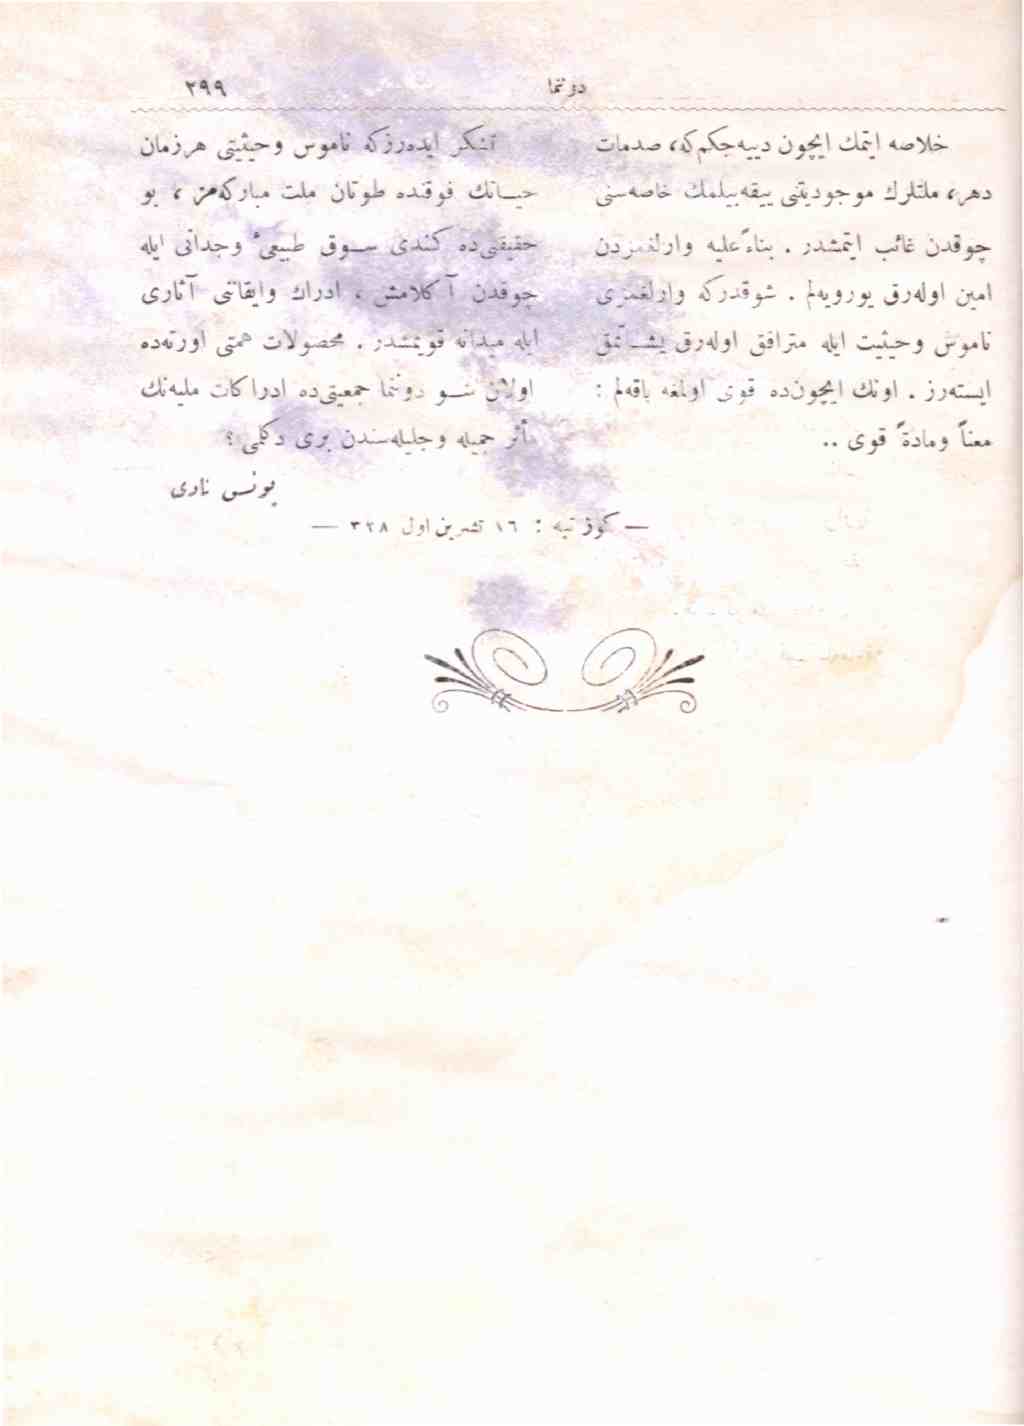 دوننما
٢٩٩
خلاصه ایتمك ایچون دییه‌جكم‌كه، صدمات
دهر، ملتلرك موجودیتنی ییقه‌بیلمك خاصه‌سنی
چوقدن غائب ایتمشدر . بناءً علیه وارلغمزدن
امین اوله‌رق یورویه‌لم . شوقدركه وارلغمزی
ناموس وحیثیت ایله مترافق اوله‌رق یشـاتمق
ایسته‌رز . اونك ایچون‌ده قوی اولمغه باقه‌لم :
معناً ومادةً قوی ..
تشكر ایده‌رزكه ناموس وحیثیتی هرزمان
حیـاتك فوقنده طوتان ملت مباركه‌مز ، بو
حقیقتی‌ده كندی سـوق طبیعیٔ وجدانی ایله
چوقدن آ كلامش ، ادراك وایقاننی آثاری
ایله میدانه قویمشدر . محصولات همتی اورته‌ده
اولان شـو دوننما جمعیتی‌ده ادراكات ملیه‌نك
مآثر جمیله وجلیله‌سندن بری دكلمی ؟
یونس نادی
— كوز تپه : ١٦ تشرین اول ٣٢٨ —